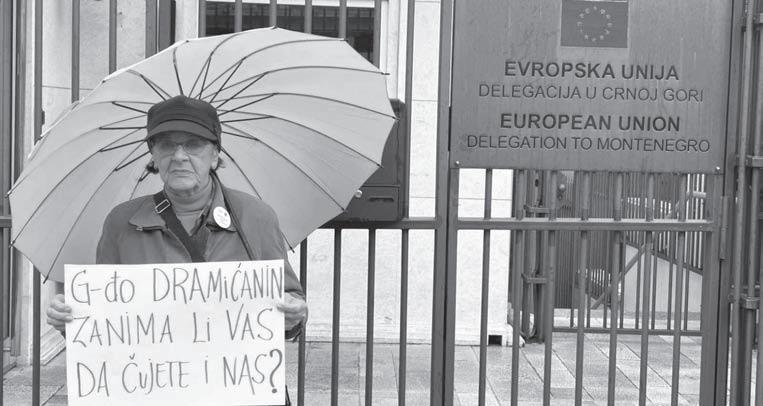 EVROPSKA UNIJA
DELEGACIJA U CRNOJ GORI
EUROPEAN UNION
DELEGATION TO MONTENEGRO
G-đo DRAMIĆANIN
ZANIMA LI VAS
DA ČUJETE I NAS?